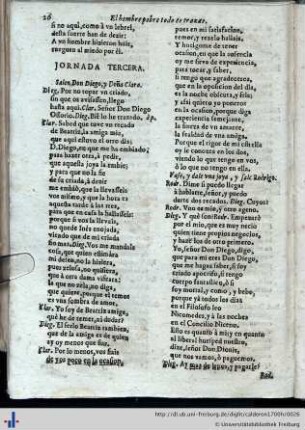 26 El hombre pobre todo es trazas.
si no aqui, como à vn lebrel,
desta suerte han de dezir:
A vn hombre hizieron huir,
tuvgota al miedo por èl.
JORNADA TERCERA.
Salen Don Diego, y Doña Clara.
Dieg. Por no topar vn criado,
sin que os avisassen, llego
hasta aqui. Clar. Señor Don Diego
Ossorio. Dieg. Biẽ lo he tratado. ap.
Clar. Sabed que tuve vn recado
de Beatriz, la amiga mia,
que aqui estuvo el otro dia:
D. Diego, en que me ha embiado;
para hazer otra, à pedir,
que aquella joya la embie;
y para que no la fie
de criada, à dezir
me embiò, que la llevasseis
vos mismo, y que la hora es
aquesta tarde à las tres,
para que en casa la hallasseis:
porque si vos la llevais,
no quede Inès enojada,
viendo que de mi criada
fio mas. Dieg. Vos me mandais
cosa, que quien estima
mi deseo, no lo hiziera,
pues zelosa, no quisiera,
que à otra dama visitara:
la que no zela, no digo,
que quiere, porque el temor
es vna sombra de amor.
Clar. Yo soy de Beatriz amiga,
què he de temer, si adora?
Dieg. El serlo Beatriz tambien,
que de la amiga es de quien
ay oy menos que fiar.
Clar. Por lo menos, vos sois
de poco en la ocasion,
pues en mi satisfacion,
temor, y traza hallais.
Y huelgome de tener
ocasion, en que la ausencia
oy me sirva de experiencia,
para tocar, y saber,
si tengo que agradeceros,
que en la oposicion del dia,
es la noche obscura, y fria;
y assi quiero yo poneros
en la ocasion, porque diga
experiencia semejante,
la fineza de vn amante,
la lealtad de vna amiga.
Porque el rigor de mi estrella
oy le conozca en los dos,
viendo lo que tengo en vos,
ò lo que no tengo en ella.
Vase, y dale vna joya, y sale Rodrigo.
Rodr. Dime si puedo llegar
à hablarte, señor, y puedo
darte dos recados. Dieg. Cuyos?
Rodr. No tienen dueño los dos.
Dieg. Y què son? Rodr. Empezarè
por el mio, que es muy necio
quien tiene propios negocios,
y haze los de otro primero.
Yo, señor Don Diego, digo,
que para mi eres Don Diego,
que me hagas saber, si soy
criado apocrifo, si tengo
cuerpo fantastico, ò si
soy mortal, y como, y bebo,
porque ya todos los dias
en el Filosofo leo
Nicomedes, y à las noches
en el Concilio Niceno.
Esto es quanto à mi; y en quanto
al liberal huesped nuestro,
dize, señor Don Dionis,
que nos vamos, ò paguemos.
Dieg. Rod.
http://dl.ub.uni-freiburg.de/diglit/calderon1700h/0028
© Universitätsbibliothek Freiburg